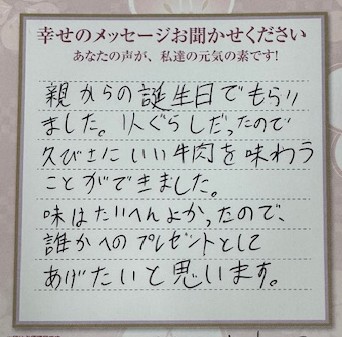 幸せのメッセージお聞かせください
あなたの声が、私達の元気の素です!
親からの誕生日でもらり
ました。1人ぐらしだったので
久びさにいい牛肉を味わう
ことができました。
味はたいへんよかったので、
誰かへのプレゼントとして
あげたいと思います。